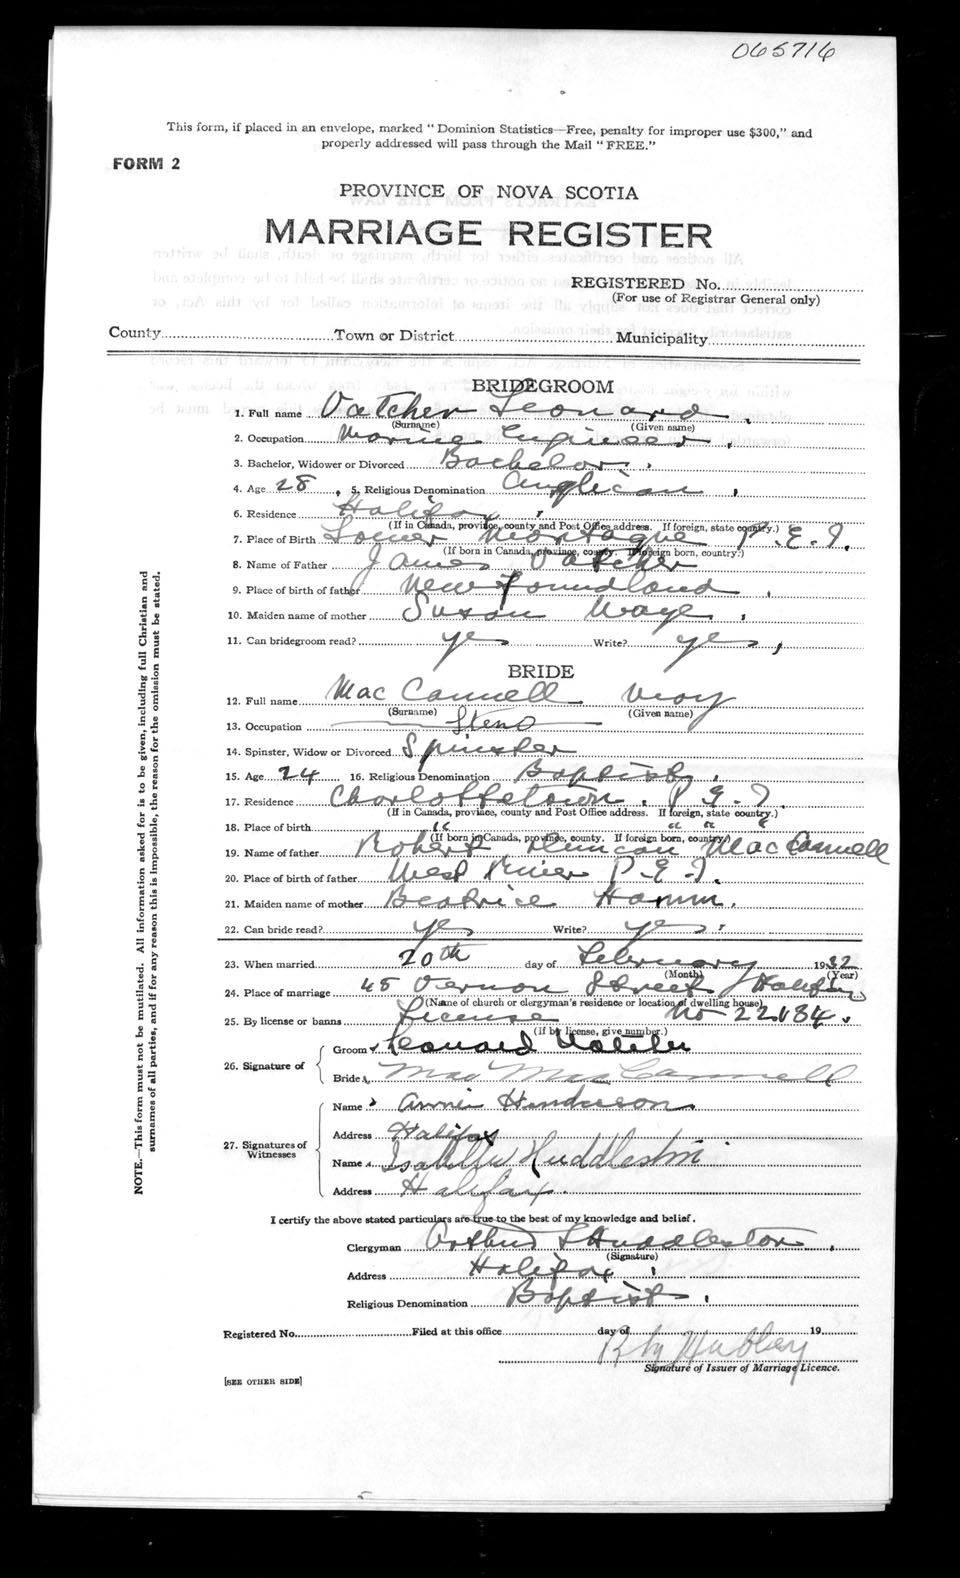 065716
This form, if placed in an envelope, marked "Dominion Statistics—Free, penalty for improper use $300," and
properly addressed will pass through the Mail "FREE."
FORM 2
PROVINCE OF NOVA SCOTIA
MARRIAGE REGISTER
REGISTERED No.
(For use of Registrar General only)
County Town or District Municipality
BRIDEGROOM
1. Full name Vatcher Leonard
(Surname) (Given name)
2. Occupation Marine Engineer
3. Bachelor, Widower or Divorced Bachelor
4. Age 28 5. Religious Denomination Anglican
6. Residence Halifax
(If in Canada, province, county and Post Office address. If foreign, state country.)
7. Place of Birth Lower Montague P.E.I.
(If born in Canada, province, county. If foreign born, country.)
8. Name of Father James Vatcher
9. Place of birth of father Newfoundland
10. Maiden name of mother Susan
11. Can bridegroom read? yes Write? yes
BRIDE
12. Full name MacCannell
(Surname) (Given name)
13. Occupation Steno
14. Spinster, Widow or Divorced Spinster
15. Age 24 16. Religious Denomination Baptist
17. Residence Charlottetown. P.E.I.
(If in Canada, province, county and Post Office address. If foreign, state country.)
18. Place of birth " " " "
(If born in Canada, province, county. If foreign born, country.)
19. Name of father Robert Duncan MacCannell
20. Place of birth of father West River P.E.I.
21. Maiden name of mother Beatrice Hamm.
22. Can bride read? yes Write? yes
23. When married 20th day of February 1932
(Month) (Year)
24. Place of marriage 45 Vernon Street Halifax
(Name of church or clergyman's residence or location of dwelling house)
25. By license or banns License No 22184.
(If by license, give number.)
26. Signature of
Groom Leonard Vatcher
Bride MacCannell
27. Signatures of Witnesses
Name Annie Henderson
Address Halifax
Name Isabella Huddleston
Address Halifax.
I certify the above stated particulars are true to the best of my knowledge and belief.
Clergyman Arthur Huddleston
(Signature)
Address Halifax
Religious Denomination Baptist
Registered No. Filed at this office day of 19
Hubley
Signature of Issuer of Marriage Licence.
[SEE OTHER SIDE]
NOTE.—This form must not be mutilated. All information asked for is to be given, including full Christian and
surnames of all parties, and if for any reason this is impossible, the reason for the omission must be stated.